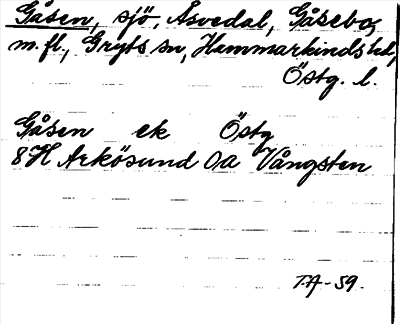 Gåsen, sjö, Åsvedal, Gåsebo,
m.fl., Gryts sn, Hammarkinds hd,
Östg. l.
Gåsen ek Östg
8H Arkösund 0a Vångsten
T.A-59.